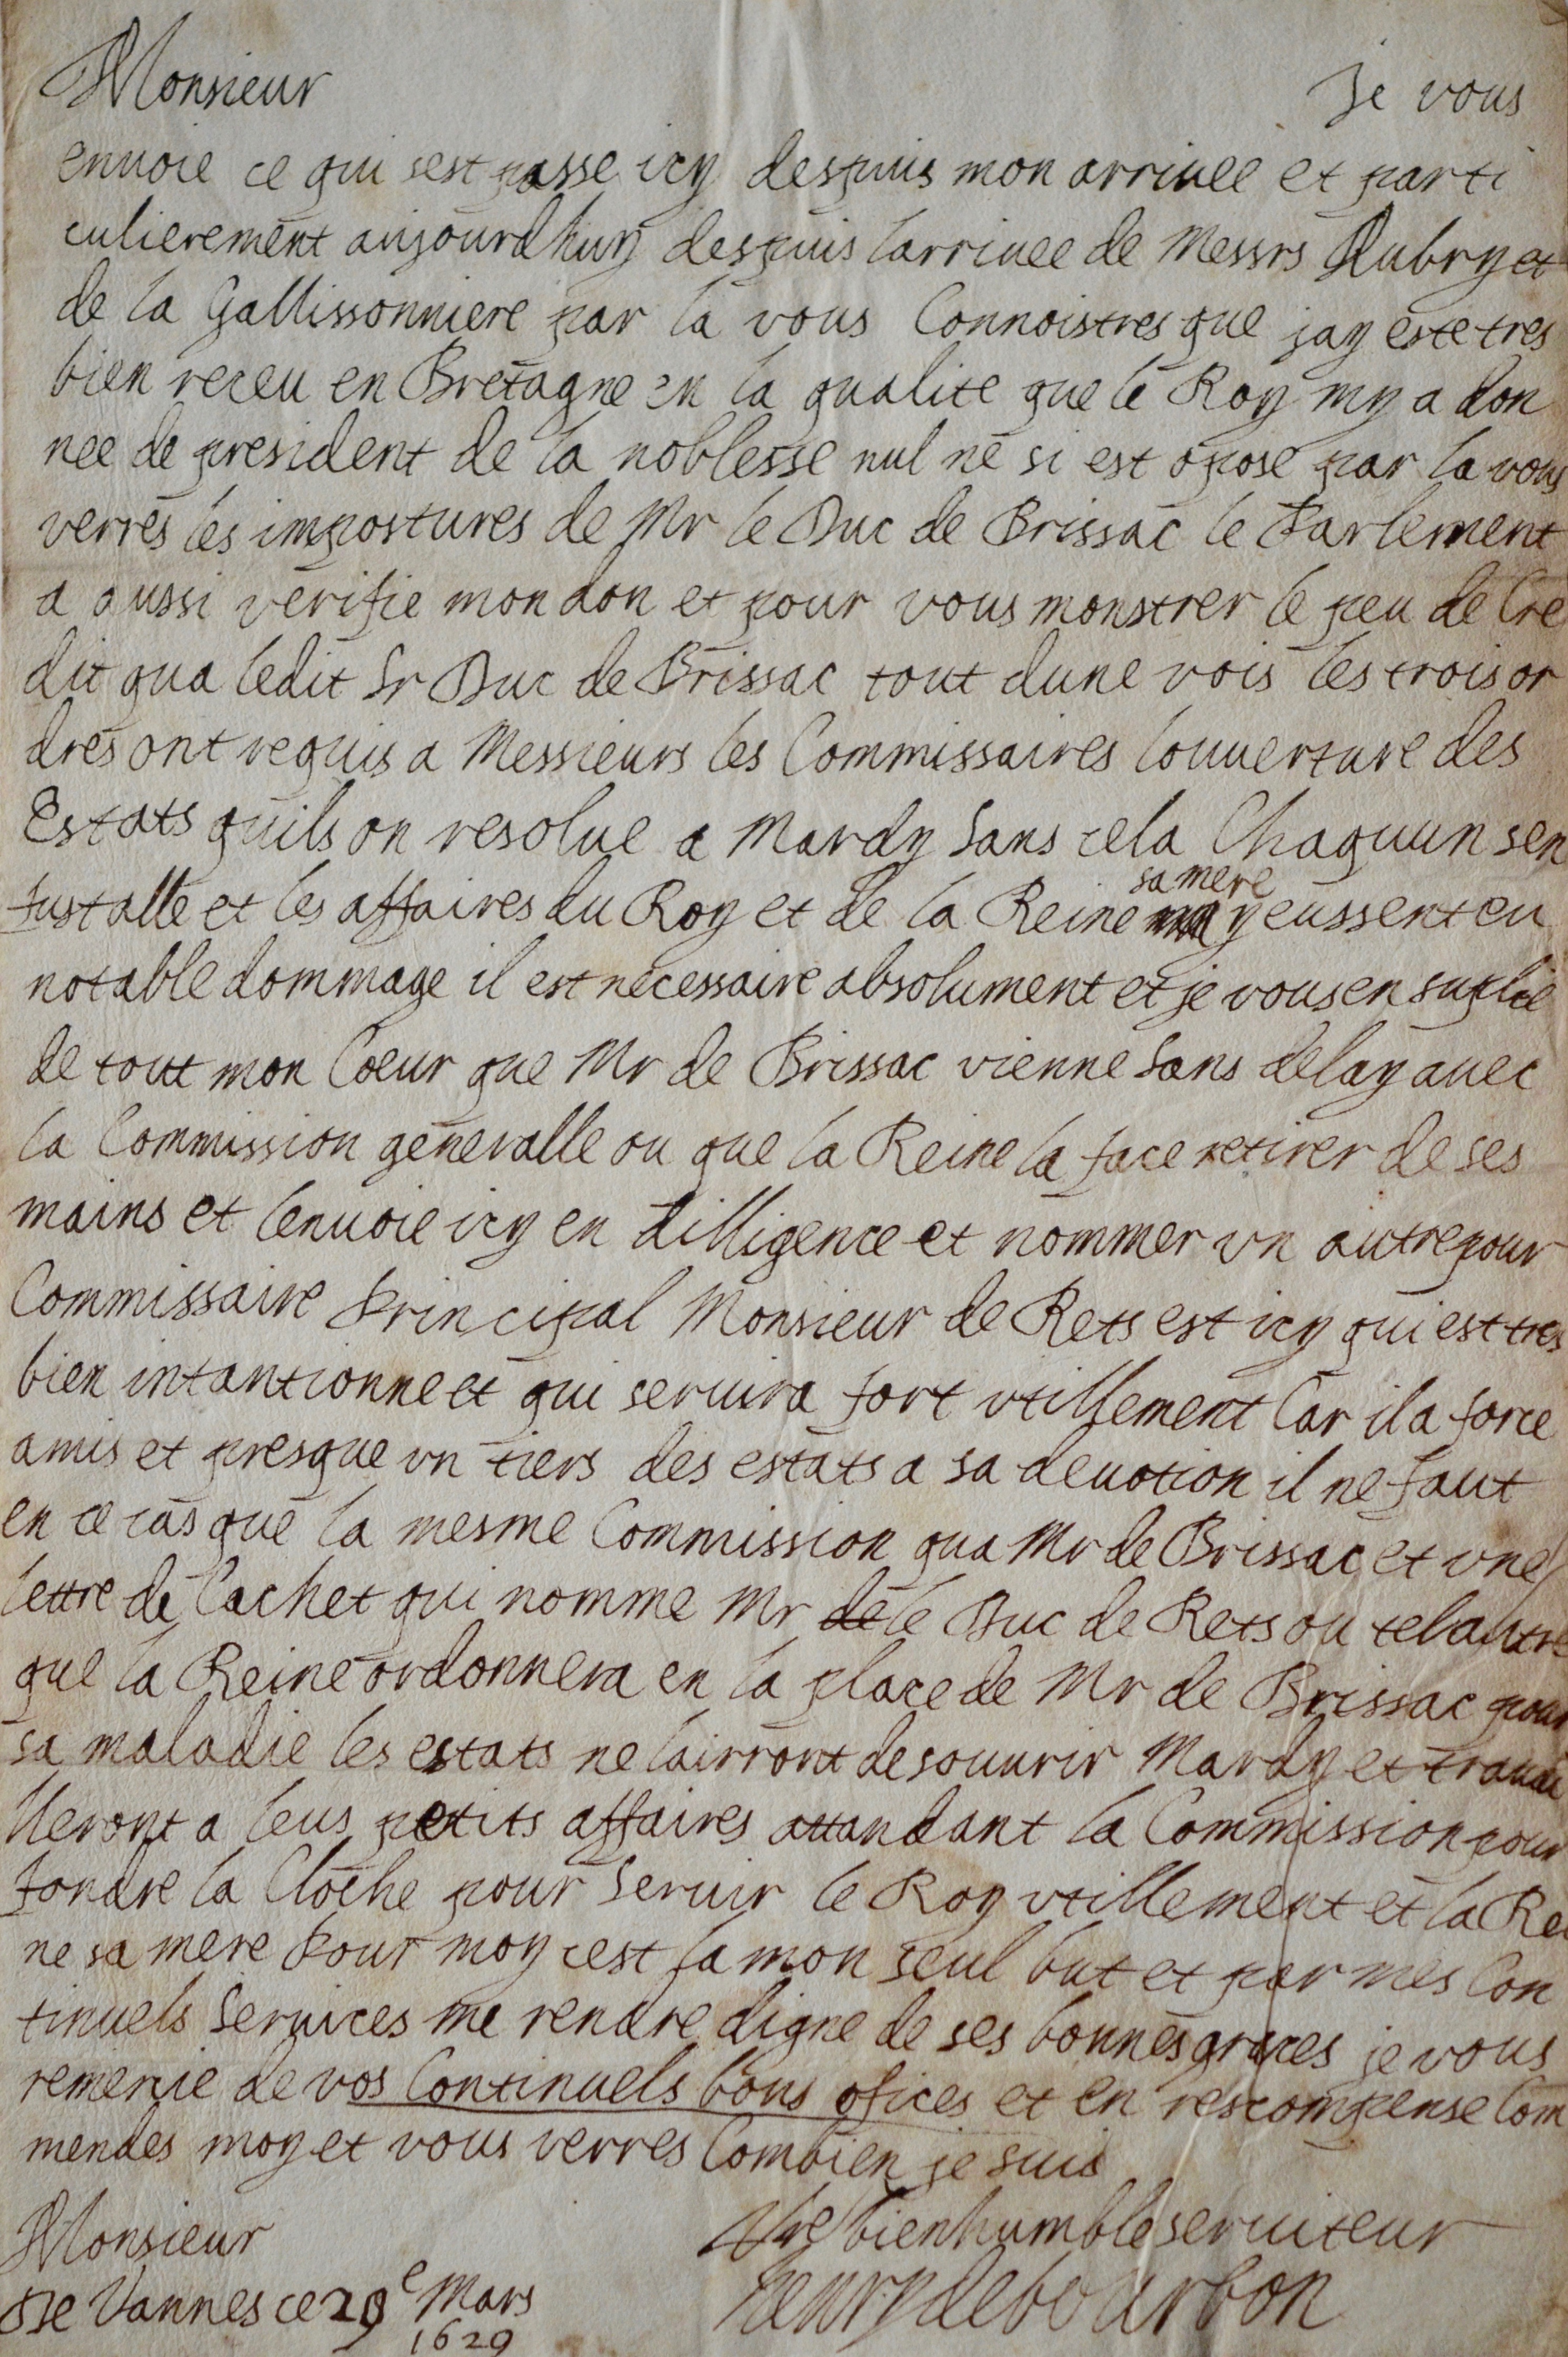 Monsieur Je vous
enuoie ce qui sest passe icy despuis mon arriuee et parti
culierement aujourdhuy despuis larriuee de Messrs Aubry et
de la Gallissonniere par la vous Connoistres que jay este tres
bien receu en Bretagne en la qualite que le Roy my a don
nee de president de la noblesse nul ne si est opose par la vous
verres les impostures de Mr le Duc de Brissac le Parlement
a aussi verifie mon don et pour vous monstrer le peu de Cre
dit qua ledit Sr Duc de Brissac tout dune vois les trois or
dres ont requis a Messieurs les Commissaires louuerture des
Estats quils on resolue a Mardy Sans cela Chaquun sen
fust alle et les affaires du Roy et de la Reine sa mere y eussent eu
notable dommage il est necessaire absolument et je vous en suplie
de tout mon Coeur que Mr de Brissac vienne Sans delay auec
la Commission generalle ou que la Reine la face retirer de ses
mains et lenuoie icy en dilligence et nommer vn autre pour
Commissaire Principal Monsieur de Rets est icy qui est tres
bien intantionne et qui seruira fort vtillement Car il a force
amis et presque vn tiers des estats a sa deuotion il ne faut
en ce cas que la mesme Commission qua Mr de Brissac et vne
lettre de Cachet qui nomme Mr de le Duc de Rets ou tel autre
que la Reine ordonnera en la place de Mr de Brissac pour
sa maladie les estats ne lairront de souurir Mardy et trauai
lleront a leus petits affaires attandant la Commission pour
fondre la Cloche pour Seruir le Roy vtillement et la Rei
ne sa mere Pour moy cest la mon seul but et par mes Con
tinuels Seruices me rendre digne de ses bonnes graces je vous
remercie de vos Continuels bons ofices et en rescompense Com
mendes moy et vous verres Combien je suis
Monsieur Vre bien humble seruiteur
De Vannes ce 29e Mars henry de bourbon
1629